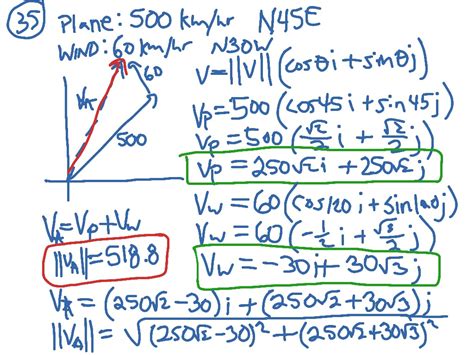 35 Plane: 500 km/hr N45E
WIND: 60 km/hr N30W
60
V_A
500
V=||V||(cosθi+sinθj)
V_P=500(cos45i+sin45j)
V_P=500(√2/2 i + √2/2 j)
V_P=250√2i+250√2j
V_A=V_P+V_W
||V_A||=518.8
V_W=60(cos120i+sin120j)
V_W=60(-1/2 i + √3/2 j)
V_W=-30i+30√3j
V_A=(250√2-30)i+(250√2+30√3)j
||V_A||=√(250√2-30)²+(250√2+30√3)²